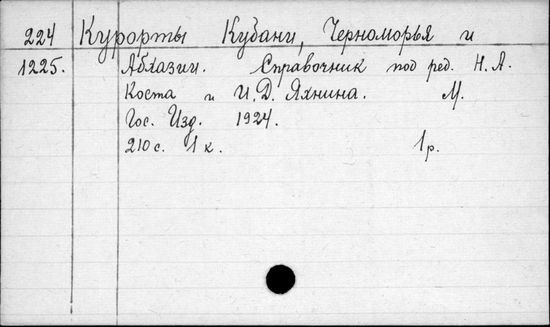 224 Курорты Кубани, Черноморья и
1225. Абхазии. Справочник под ред. Н. А.
Коста и И. Д. Яхнина. М.
Гос. Изд. 1924.
210 с. 1 к. 1 р.